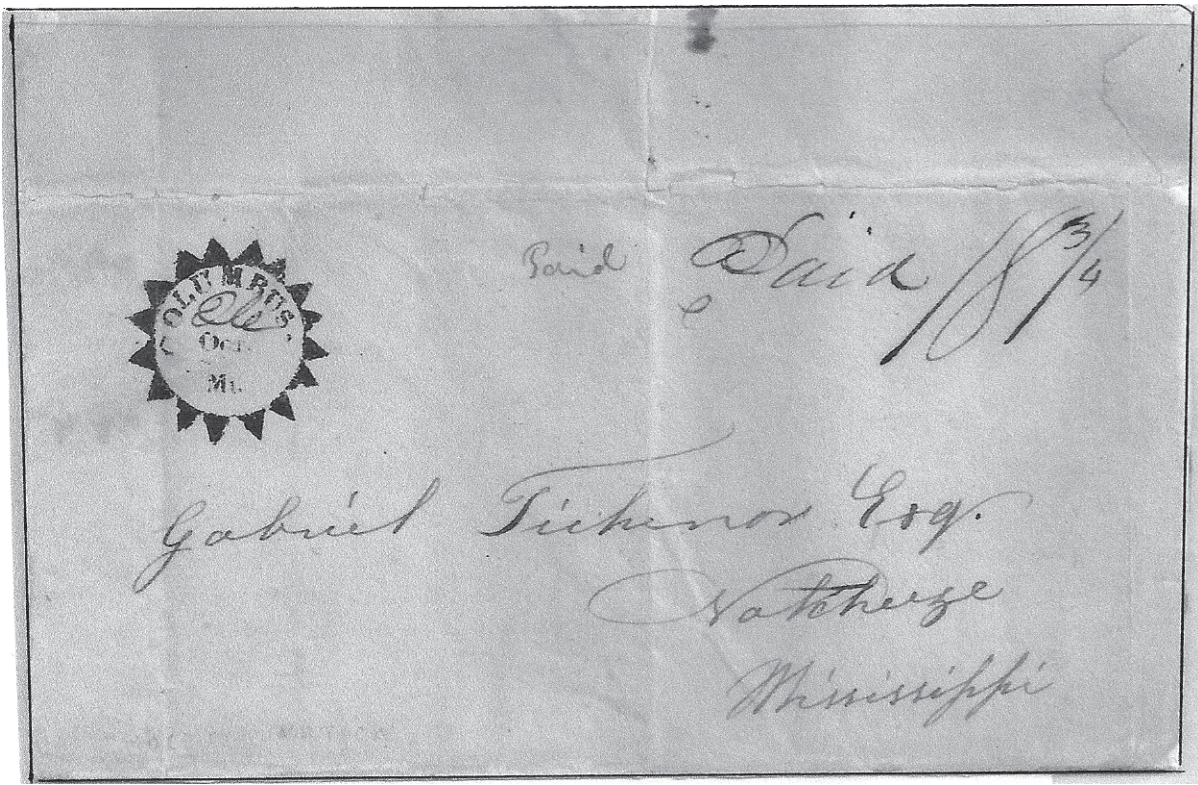 COLUMBUS
Oct.
Mi.
Paid Paid 18 3/4
Gabriel Tichenor Esq.
Natcheze
Mississippi